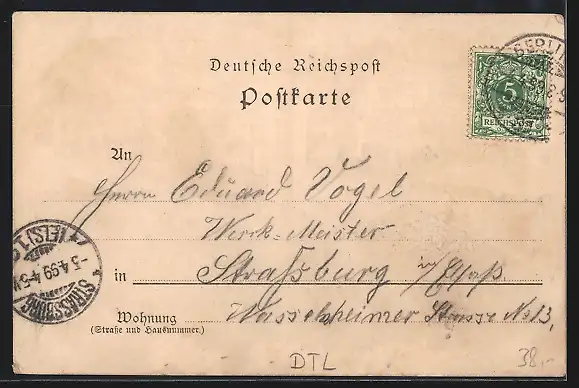 Deutsche Reichspost
Postkarte
BERLIN
5
REICHSPOST
An
Herrn Eduard Vogel
Werk-Meister
in Straßburg i/Elsaß.
Wohnung
(Straße und Hausnummer.)
Wasselnheimer Strasse No 13,
STRASSBURG
(ELS) 1
-3.4.99. 4-5
DTL
38.-